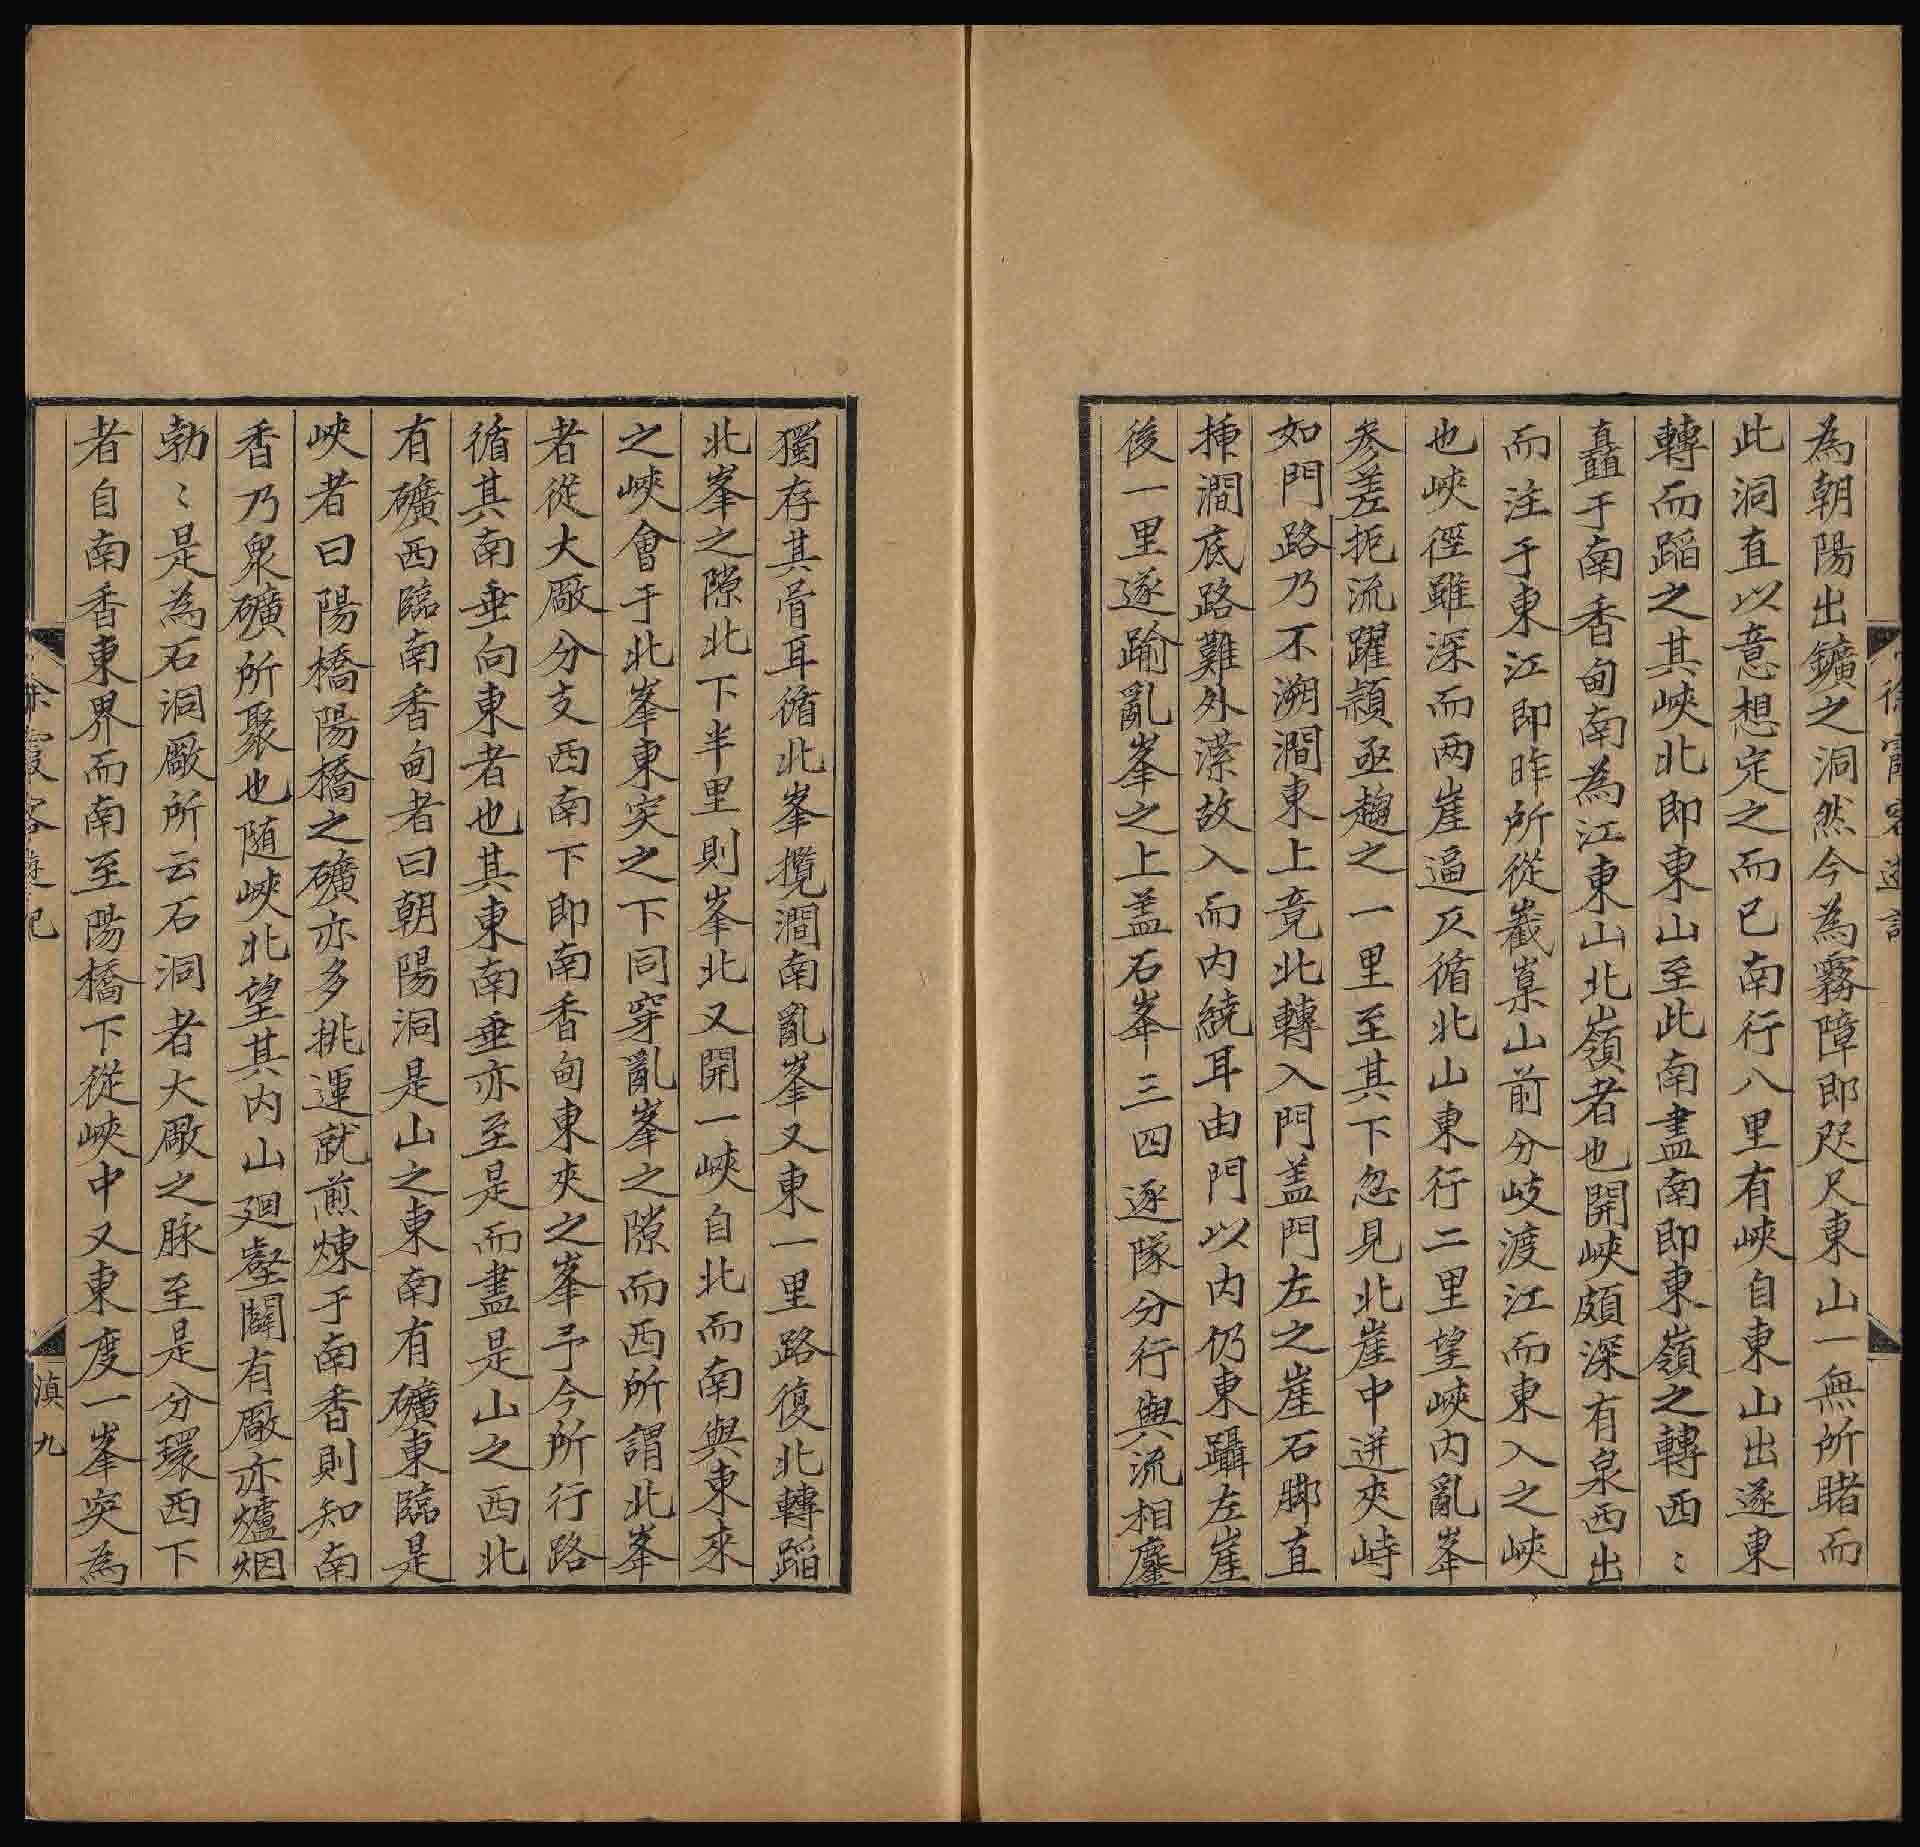 為朝陽出鑛之洞然今為霧障即咫尺東山一無所睹而
此洞直以意想定之而已南行八里有峽自東山出遂東
轉而蹈之其峽北即東山至此南盡南即東嶺之轉西〻
矗于南香甸南為江東山北嶺者也開峽頗深有泉西出
而注于東江即昨所從巀嶪山前分岐渡江而東入之峽
也峽徑雖深而两崖逼仄循北山東行二里望峽内亂峯
參差扼流躍顙亟趨之一里至其下忽見北崖中迸夾峙
如門路乃不溯澗東上竟北轉入門盖門左之崖石脚直
揷澗底路難外潆故入而内繞耳由門以内仍東躡左崖
後一里遂踰亂峯之上盖石峯三四逐隊分行與流相鏖
獨存其骨耳循北峯攬澗南亂峯又東一里路復北轉蹈
北峯之隙北下半里則峯北又開一峽自北而南與東來
之峽會于北峯東突之下同穿亂峯之隙而西所謂北峯
者從大廠分支西南下即南香甸東夾之峯予今所行路
循其南垂向東者也其東南垂亦至是而盡是山之西北
有礦西臨南香甸者曰朝陽洞是山之東南有礦東臨是
峽者曰陽橋陽橋之礦亦多挑運就煎煉于南香則知南
香乃衆礦所聚也随峽北望其内山廻壑闢有廠亦爐烟
勃〻是為石洞廠所云石洞者大廠之脉至是分環西下
者自南香東界而南至陽橋下從峽中又東度一峯突為
徐霞客遊記
滇九